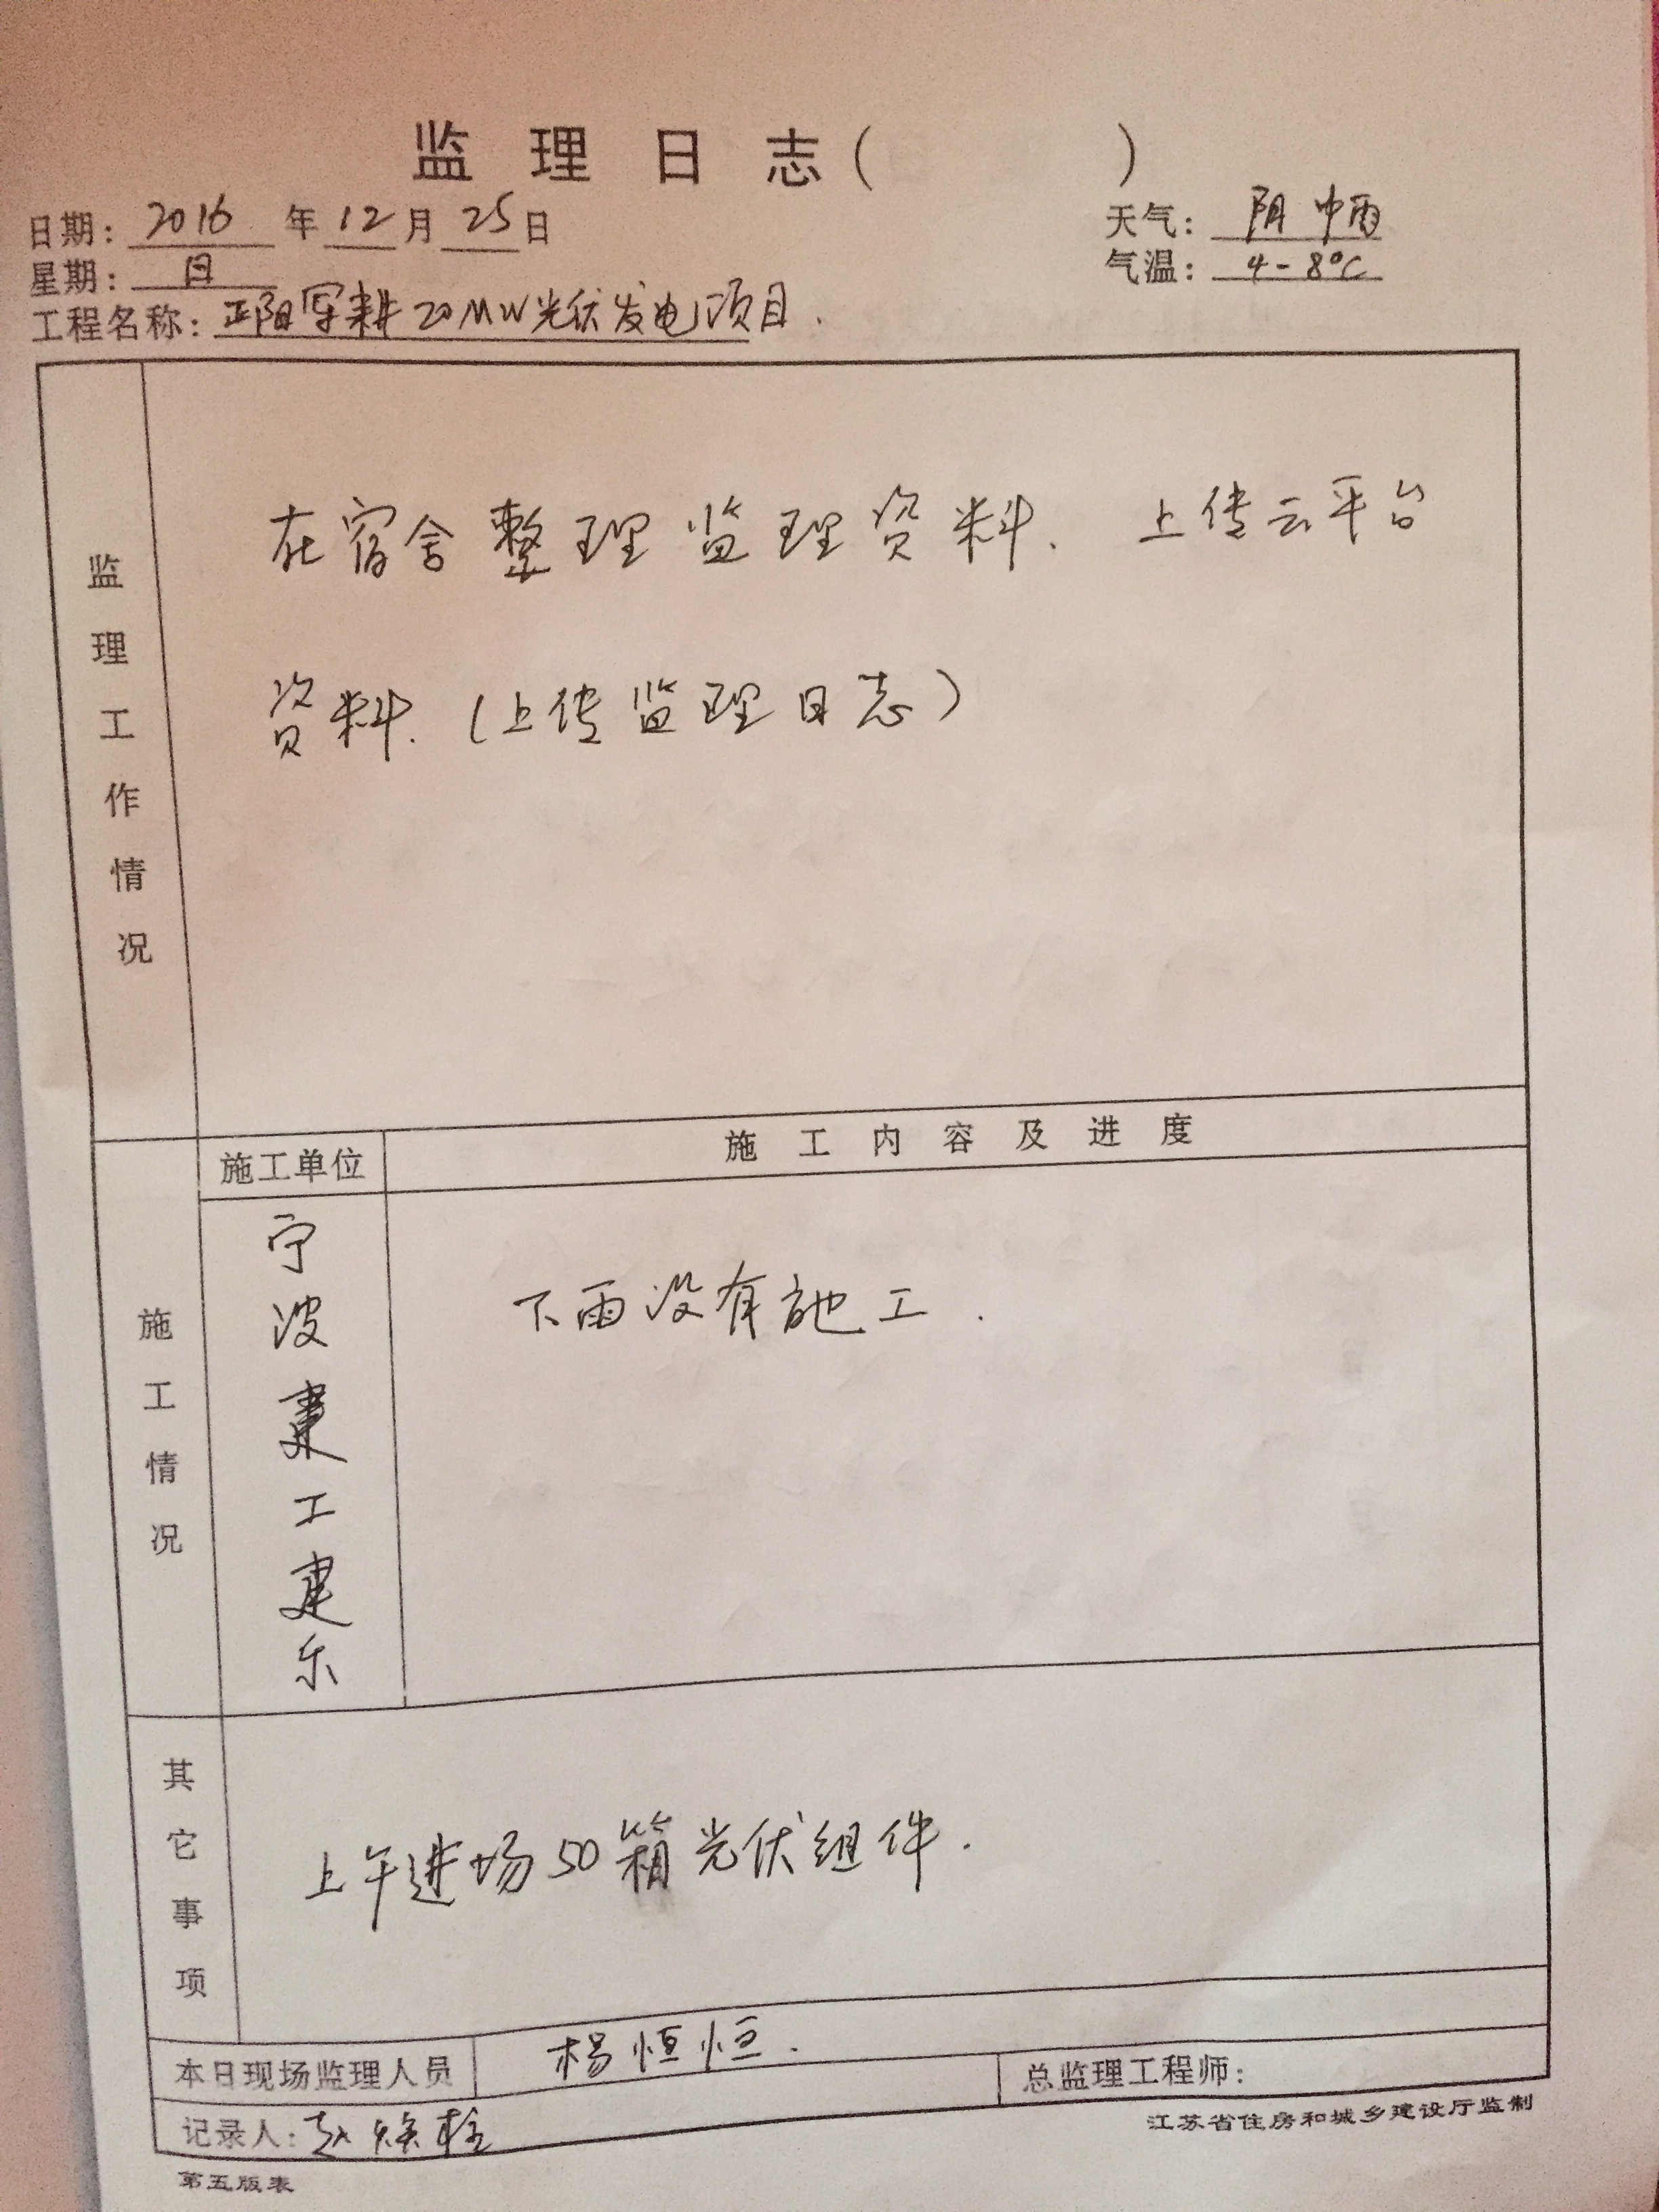 监理日志( )
日期: 2016 年 12 月 25 日
天气: 阴 中雨
星期: 日
气温: 4-8℃
工程名称: 正阳军耕20MW光伏发电项目.
监理工作情况
在宿舍整理监理资料. 上传云平台
资料. (上传监理日志)
施工情况
施工单位
施工内容及进度
宁波建工建乐
下雨没有施工.
其它事项
上午进场50箱光伏组件.
本日现场监理人员
杨恒恒.
总监理工程师:
记录人: 赵焕栓
江苏省住房和城乡建设厅监制
第五版表